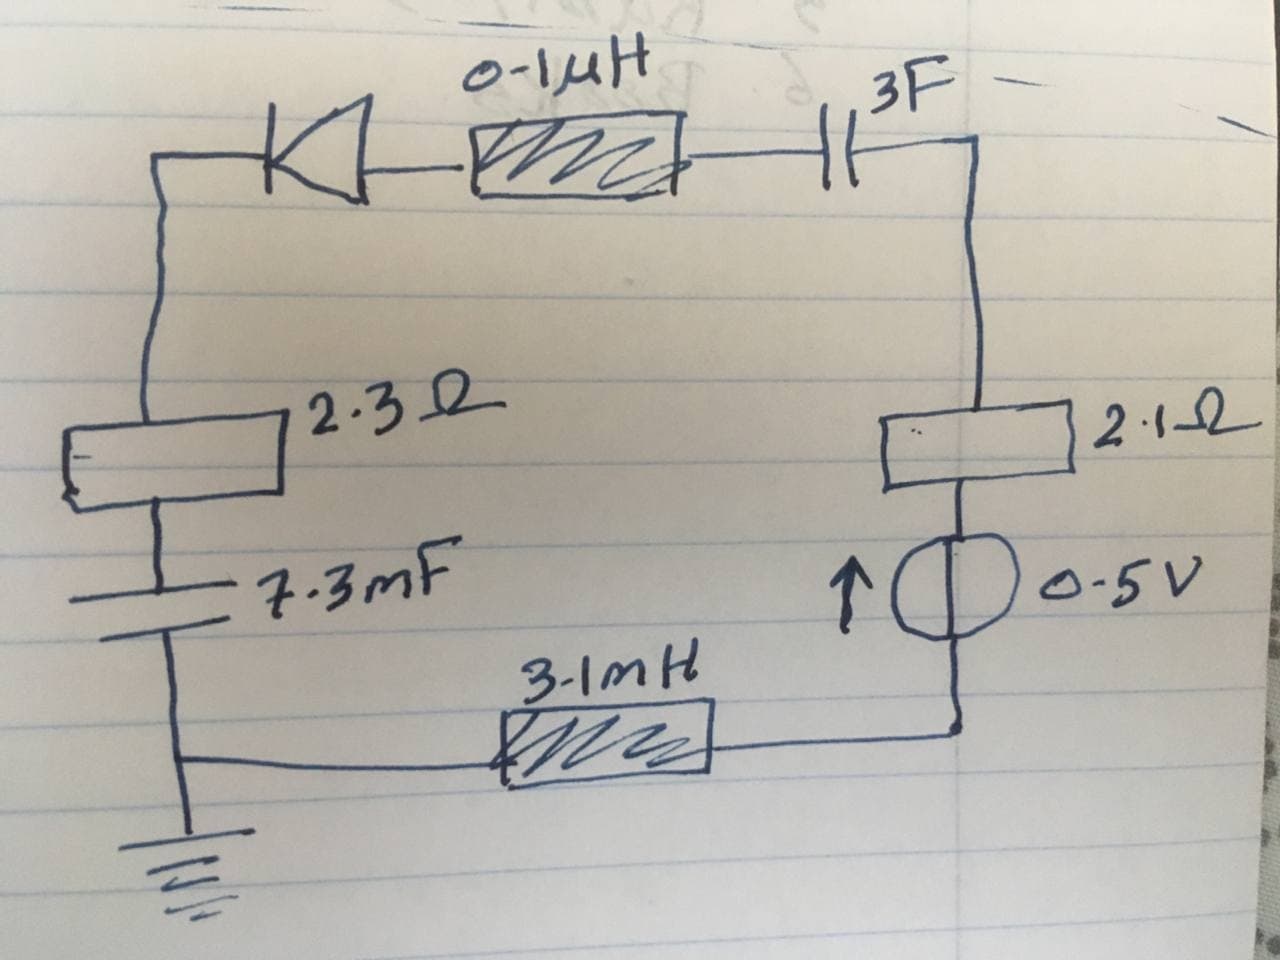 0.1μH
3F
2.3Ω
2.1Ω
7.3mF
0.5V
3.1mH